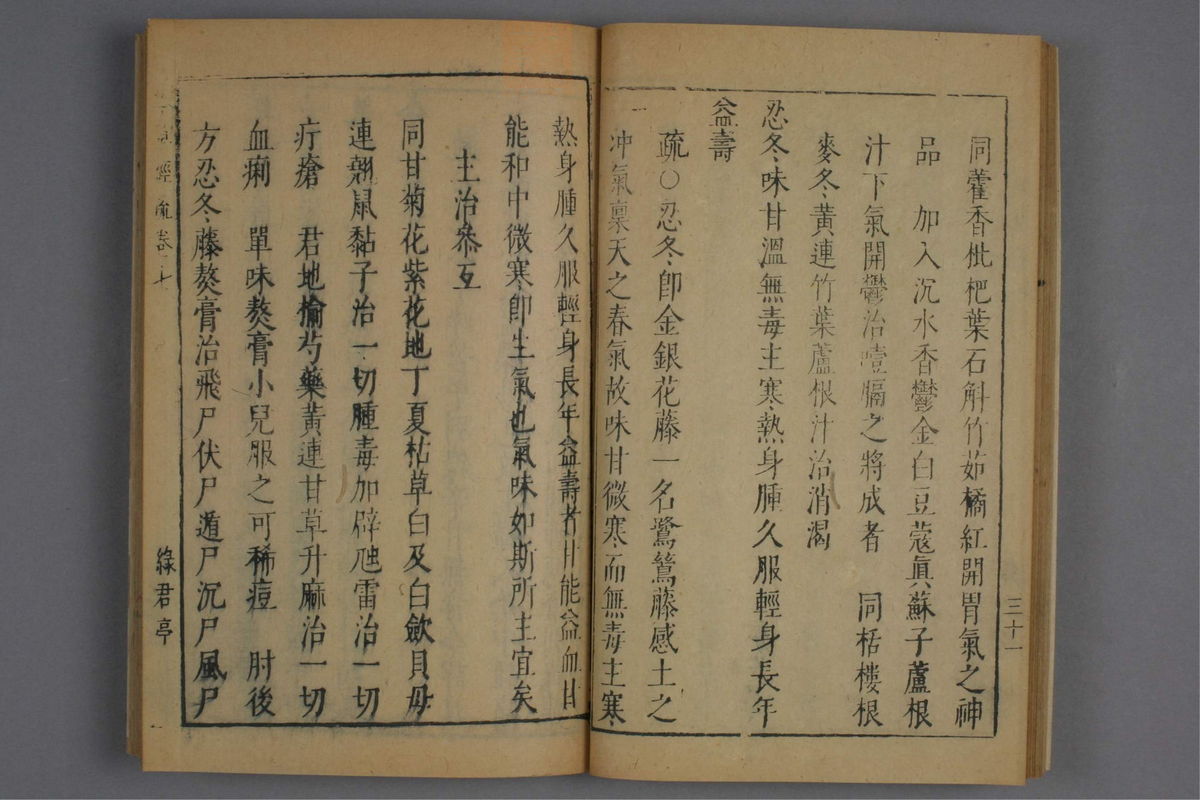 同藿香枇杷葉石斛竹茹橘紅開胃氣之神
品　加入沉水香鬱金白豆蔻眞蘇子蘆根
汁下氣開鬱治噎膈之將成者　同栝樓根
麥冬黃連竹葉蘆根汁治消渴
忍冬味甘溫無毒主寒熱身腫久服輕身長年
益壽
疏○忍冬卽金銀花藤一名鷺鷥藤感土之
冲氣稟天之春氣故味甘微寒而無毒主寒
三十一
熱身腫久服輕身長年益壽者甘能益血甘
能和中微寒卽生氣也氣味如斯所主宜矣
主治叅互
同甘菊花紫花地丁夏枯草白及白歛貝母
連翹鼠黏子治一切腫毒加辟虺雷治一切
疔瘡　君地榆芍藥黃連甘草升麻治一切
血痢　單味熬膏小兒服之可稀痘　肘後
方忍冬藤熬膏治飛尸伏尸遁尸沉尸風尸
經疏卷
綠君亭